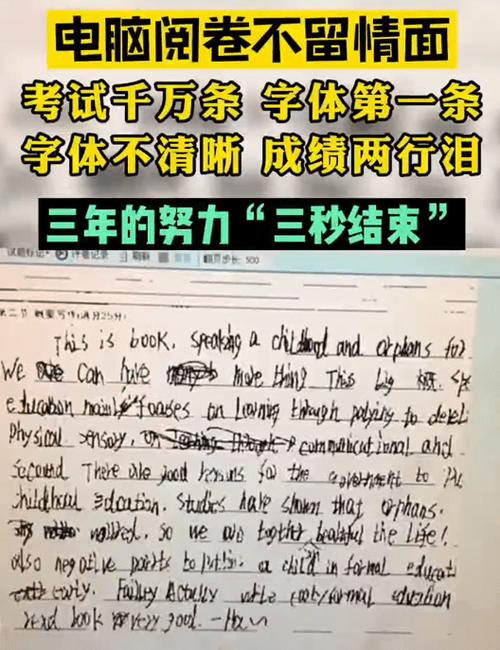 电脑阅卷不留情面
考试千万条 字体第一条
字体不清晰 成绩两行泪
三年的努力“三秒结束”
试题标记 评卷记录 刷新 翻页步长: 500
第二节 概要写作(满分25分)
This is book. Speaking a childhood and orphans for
We can have more thing This big 概.
education mainly focuses on learning through to
physical sensory, communicational and
second There are good for the government to
childhood Education. Studies have shown that orphans.
so we are together beautiful the life!
also negative points to a child in formal educati
early. Actually formal education
read book very good.